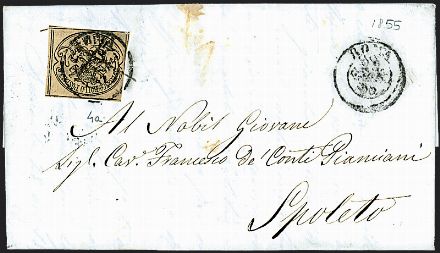 1855
ROMA
4a
Al Nobil Giovane
Sigl. Cav. Francesco de' Conti Pianciani
Spoleto